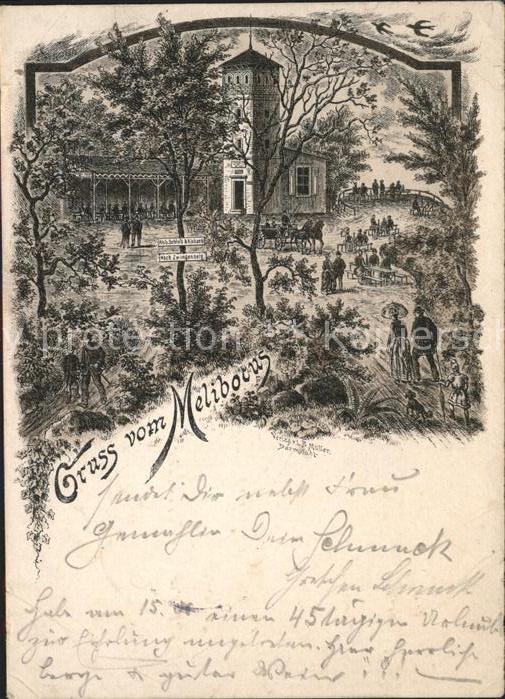 Nach Schloß Alsbach
Nach Zwingenberg
Gruss vom Melibocus
Verlag v. B. Müller,
Darmstadt.
sendet Dir nebst Frau
Gemahlin Dein Schmuck
Gretchen Schmuck
Habe am 15. einen 45tägigen Urlaub
zur Erholung angetreten. Hier herrliche
Berge & guter Wein!!! —